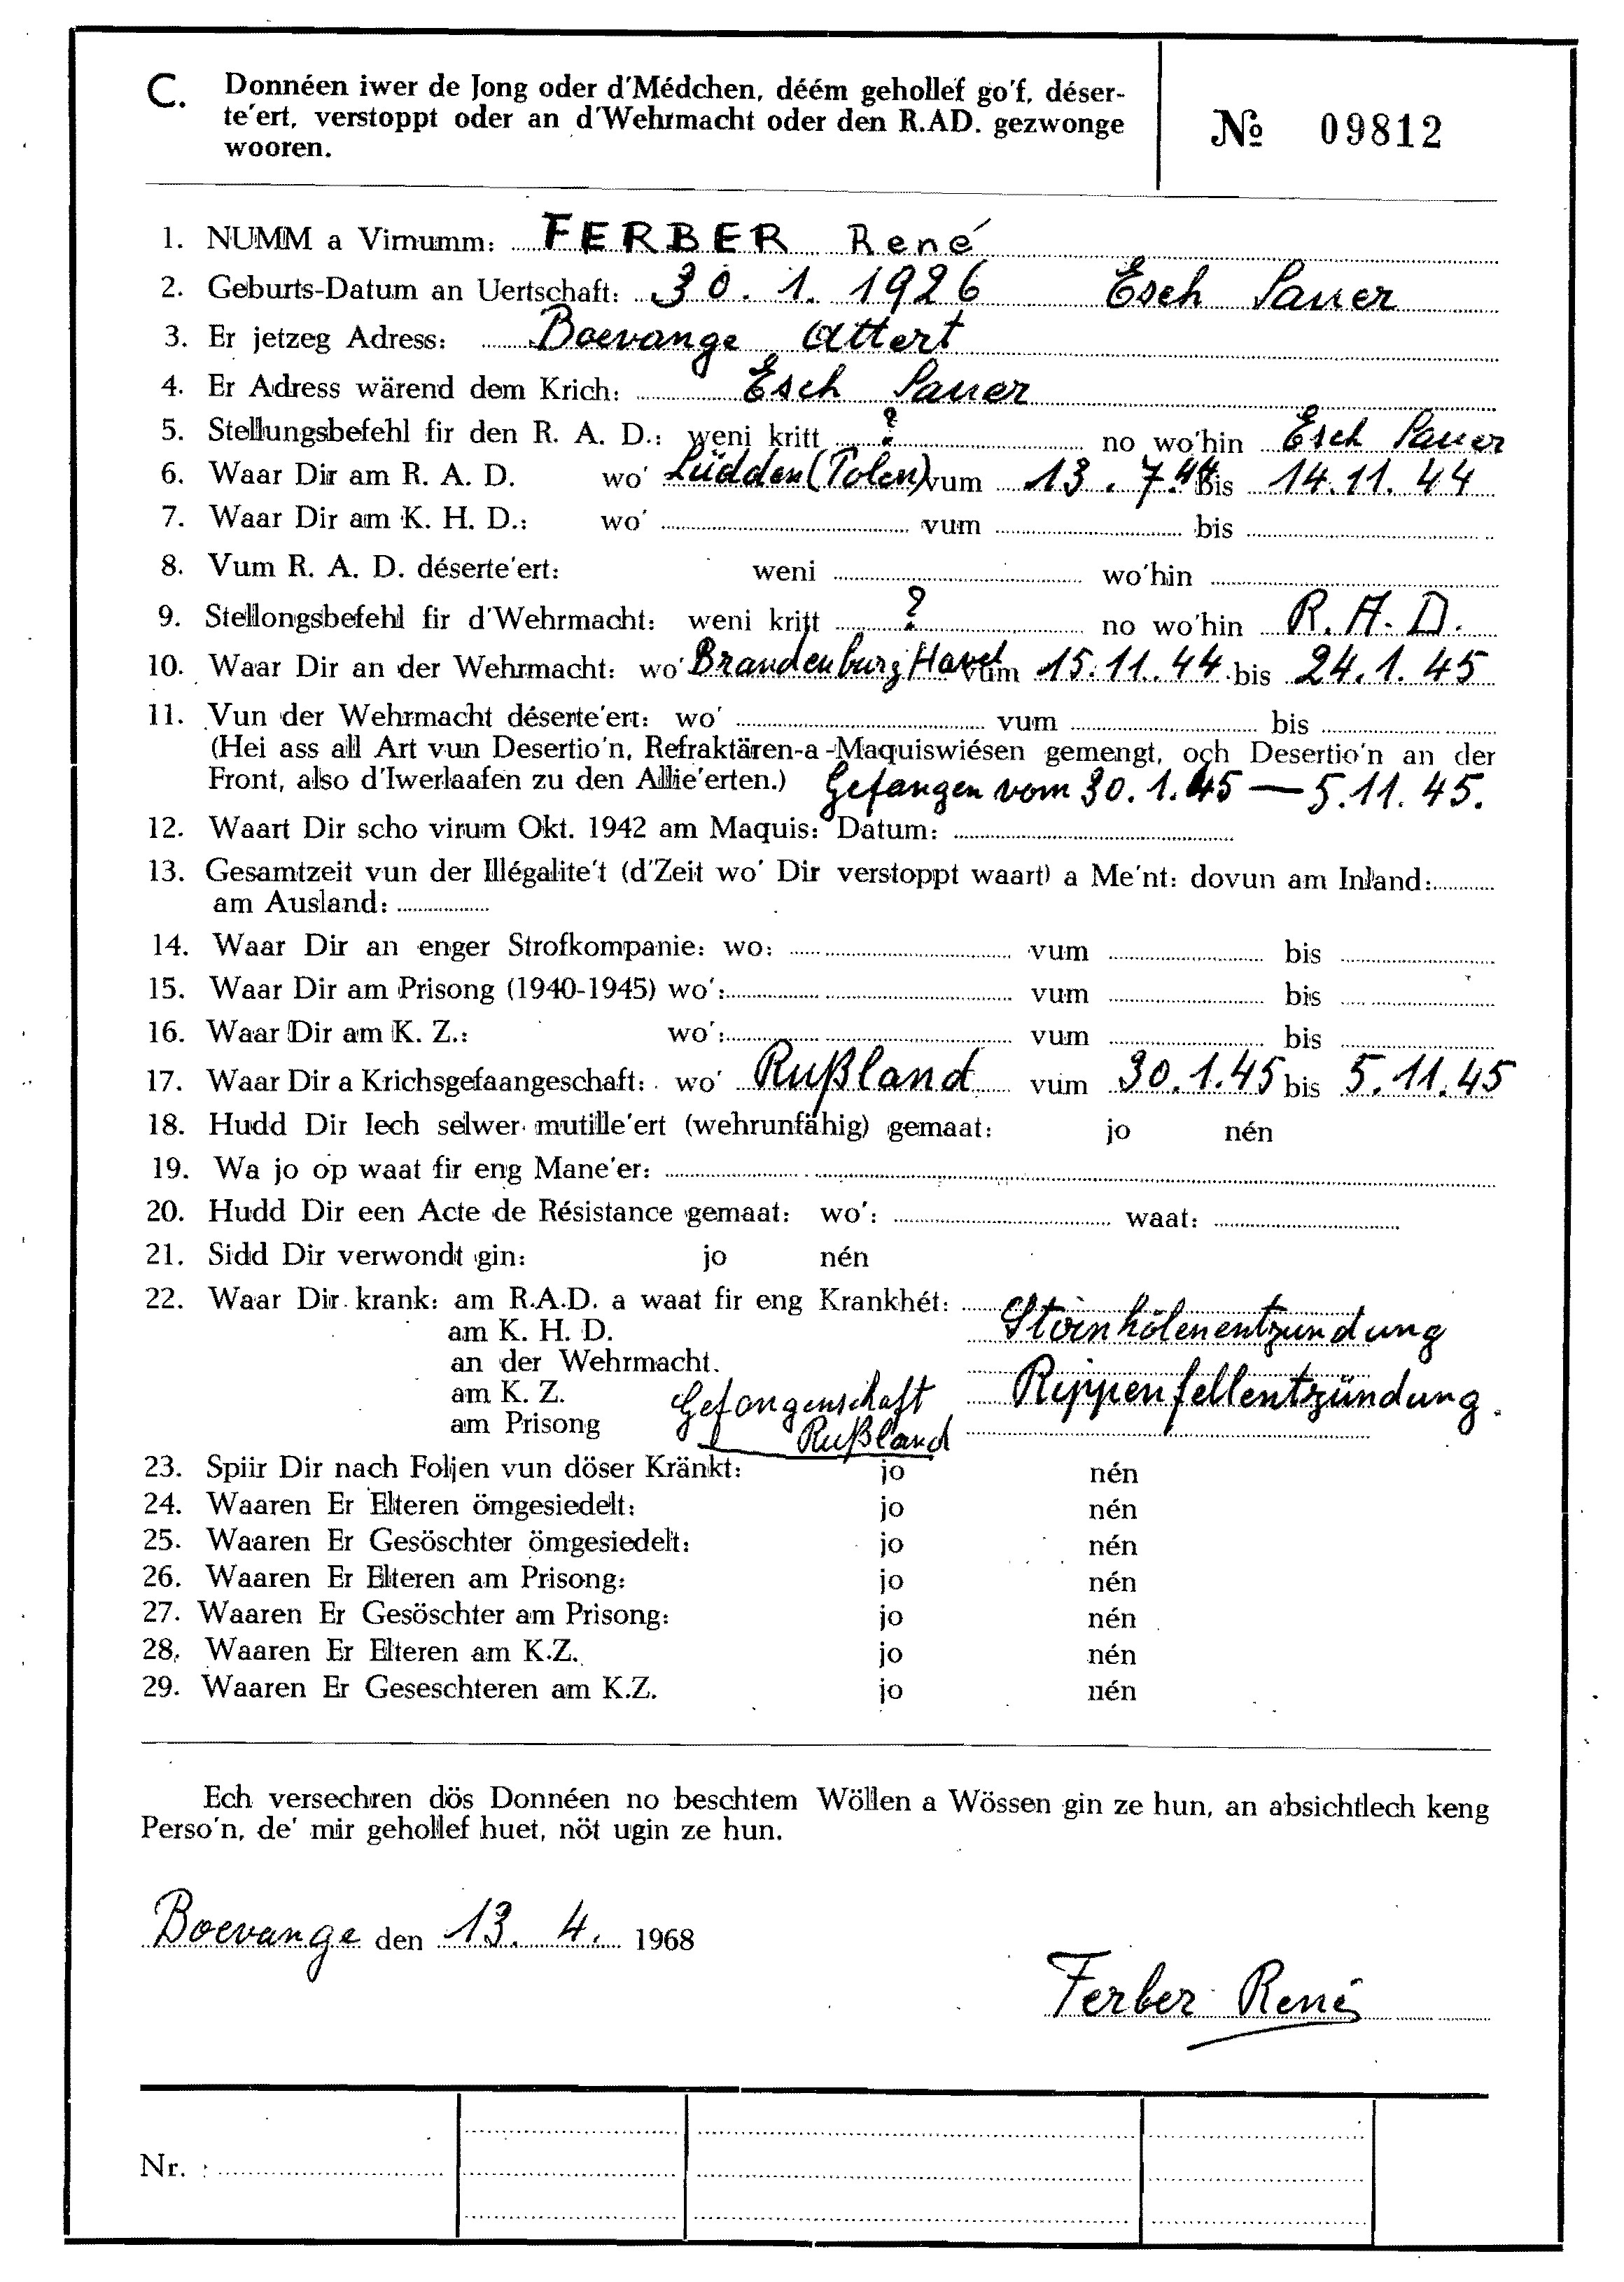 C. Donnéen iwer de Jong oder d'Médchen, déém gehollef go'f, déser-
te'ert, verstoppt oder an d'Wehrmacht oder den R.AD. gezwonge
wooren.
No 09812
1. NUMM a Virnumm: FERBER René
2. Geburts-Datum an Uertschaft: 30. 1. 1926 Esch Sauer
3. Er jetzeg Adress: Boevange Attert
4. Er Adress wärend dem Krich: Esch Sauer
5. Stellungsbefehl fir den R. A. D.: weni kritt ? no wo'hin Esch Sauer
6. Waar Dir am R. A. D. wo' Lüdden (Polen) vum 13. 7. 44 bis 14.11.44
7. Waar Dir am K. H. D.: wo' vum bis
8. Vum R. A. D. déserte'ert: weni wo'hin
9. Stellongsbefehl fir d'Wehrmacht: weni kritt ? no wo'hin R.A.D.
10. Waar Dir an der Wehrmacht: wo' Brandenburg Havel vum 15.11.44 bis 24.1.45
11. Vun der Wehrmacht déserte'ert: wo' vum bis
(Hei ass all Art vun Desertio'n, Refraktären-a-Maquiswiésen gemengt, och Desertio'n an der
Front, also d'Iwerlaafen zu den Allie'erten.) Gefangen vom 30.1.45 — 5.11.45.
12. Waart Dir scho virum Okt. 1942 am Maquis: Datum:
13. Gesamtzeit vun der Illégalite't (d'Zeit wo' Dir verstoppt waart) a Me'nt: dovun am Inland:
am Ausland:
14. Waar Dir an enger Strofkompanie: wo: vum bis
15. Waar Dir am Prisong (1940-1945) wo': vum bis
16. Waar Dir am K. Z.: wo': vum bis
17. Waar Dir a Krichsgefaangeschaft: wo' Rußland vum 30.1.45 bis 5.11.45
18. Hudd Dir Iech selwer mutille'ert (wehrunfähig) gemaat: jo nén
19. Wa jo op waat fir eng Mane'er:
20. Hudd Dir een Acte de Résistance gemaat: wo': waat:
21. Sidd Dir verwondt gin: jo nén
22. Waar Dir krank: am R.A.D. a waat fir eng Krankhét: Stirnhölenentzundung
am K. H. D.
an der Wehrmacht.
am K. Z. Gefangenschaft Rippenfellentzündung.
am Prisong Rußland
23. Spiir Dir nach Foljen vun döser Kränkt: jo nén
24. Waaren Er Elteren ömgesiedelt: jo nén
25. Waaren Er Gesöschter ömgesiedelt: jo nén
26. Waaren Er Elteren am Prisong: jo nén
27. Waaren Er Gesöschter am Prisong: jo nén
28. Waaren Er Elteren am K.Z. jo nén
29. Waaren Er Geseschteren am K.Z. jo nén
Ech versechren dös Donnéen no beschtem Wöllen a Wössen gin ze hun, an absichtlech keng
Perso'n, de' mir gehollef huet, nöt ugin ze hun.
Boevange den 13. 4. 1968
Ferber René
Nr. :